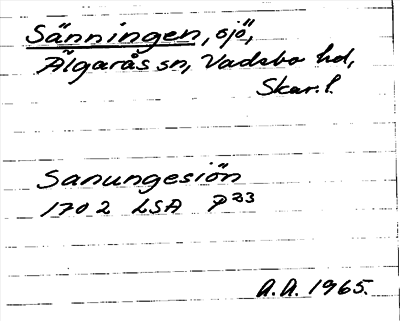 Sänningen, sjö,
Älgarås sn, Vadsbo hd,
Skar. l.
Sanungesiön
1702 LSA P33
A.A. 1965.